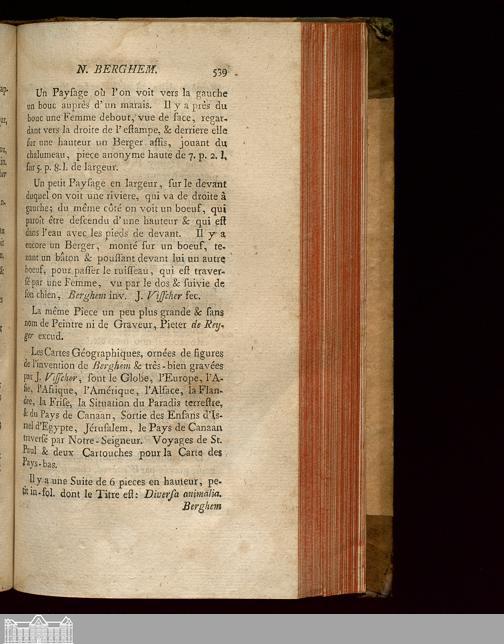 N. BERGHEM. 539
Un Payſage où l'on voit vers la gauche
un bouc auprès d'un marais. Il y a près du
bouc une Femme debout, vue de face, regar-
dant vers la droite de l'eſtampe, & derriere elle
ſur une hauteur un Berger aſſis, jouant du
chalumeau, piece anonyme haute de 7. p. 2. l,
ſur 5. p. 8. l. de largeur.
Un petit Payſage en largeur, ſur le devant
duquel on voit une riviere, qui va de droite à
gauche; du même côté on voit un boeuf, qui
paroît être deſcendu d'une hauteur & qui eſt
dans l'eau avec les pieds de devant. Il y a
encore un Berger, monté ſur un boeuf, te-
nant un bâton & pouſſant devant lui un autre
boeuf, pour paſſer le ruiſſeau, qui eſt traver-
ſé par une Femme, vu par le dos & ſuivie de
ſon chien, Berghem inv. J. Viſſcher fec.
La même Piece un peu plus grande & ſans
nom de Peintre ni de Graveur, Pieter de Rey-
ger excud.
Les Cartes Géographiques, ornées de figures
de l'invention de Berghem & très-bien gravées
par J. Viſſcher, ſont le Globe, l'Europe, l'A-
ſie, l'Afrique, l'Amérique, l'Alſace, la Flan-
dre, la Friſe, la Situation du Paradis terreſtre,
& du Pays de Canaan, Sortie des Enfans d'Iſ-
rael d'Egypte, Jéruſalem, le Pays de Canaan
traverſé par Notre-Seigneur. Voyages de St.
Paul & deux Cartouches pour la Carte des
Pays-bas.
Il y a une Suite de 6 pieces en hauteur, pe-
tit in-fol. dont le Titre eſt: Diverſa animalia.
Berghem